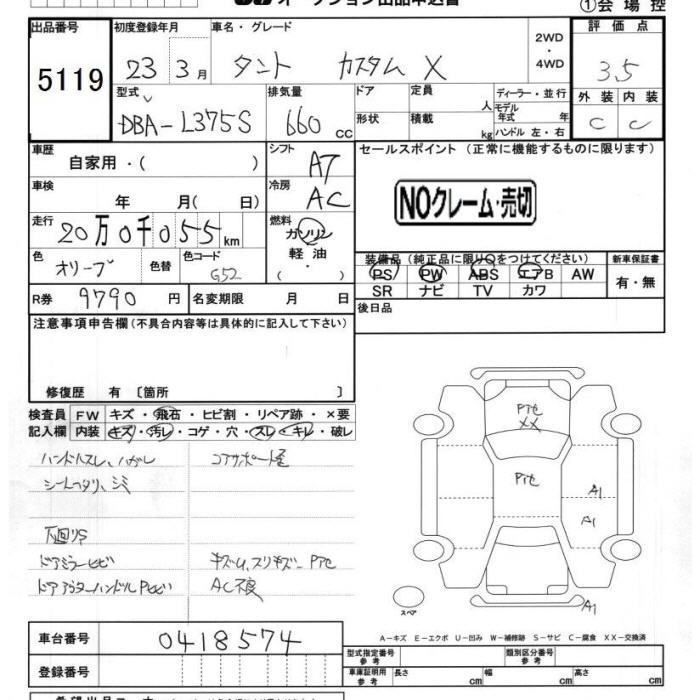 ①会場控
出品番号
5119
初度登録年月
23 3月
車名・グレード
タント カスタム X
2WD
・
4WD
評価点
3.5
外装 内装
C C
型式
DBA-L375S
排気量
660 cc
ドア
形状
定員
人
積載
kg
ディーラー・並行
モデル
年式 年
ハンドル 左・右
車歴
自家用・( )
シフト
AT
セールスポイント (正常に機能するものに限ります)
NOクレーム・売切
車検
年 月( 日)
冷房
AC
走行
20万0千055km
燃料
ガソリン
軽油
( ・ )
色
オリーブ
色替
色コード
G52
装備品(純正品に限り○をつけてください)
PS PW ABS エアB AW
SR ナビ TV カワ
新車保証書
有・無
R券
9790 円
名変期限 月 日
後日品
注意事項申告欄(不具合内容等は具体的に記入して下さい)
修復歴 有〔箇所 〕
検査員
記入欄
FW キズ・飛石・ヒビ割・リペア跡・×要
内装 キズ・汚レ・コゲ・穴・スレ・キレ・破レ
ハンドルスレ、ハガレ
コアサポート歪
シートヘタリ、シミ
下回りS
ドアミラーヒビ
キズ・ム、スリキズ・Pアセ
ドアアウターハンドルPヒビ
AC不良
Pアセ
XX
Pアセ
A1
A1
A1
スペア
A-キズ E-エクボ U-凹み W-補修跡 S-サビ C-腐食 XX-交換済
車台番号
0418574
登録番号
型式指定番号
参考
類別区分番号
参考
車庫証明用
参考
長さ cm
幅 cm
高さ cm